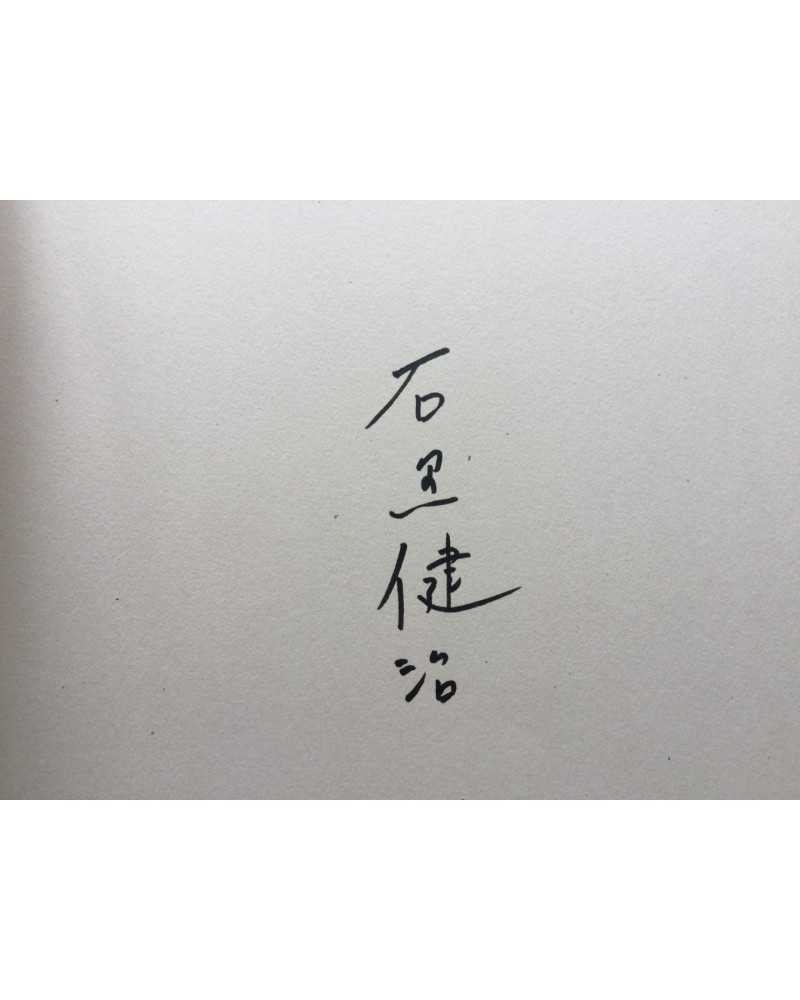 石黒健治